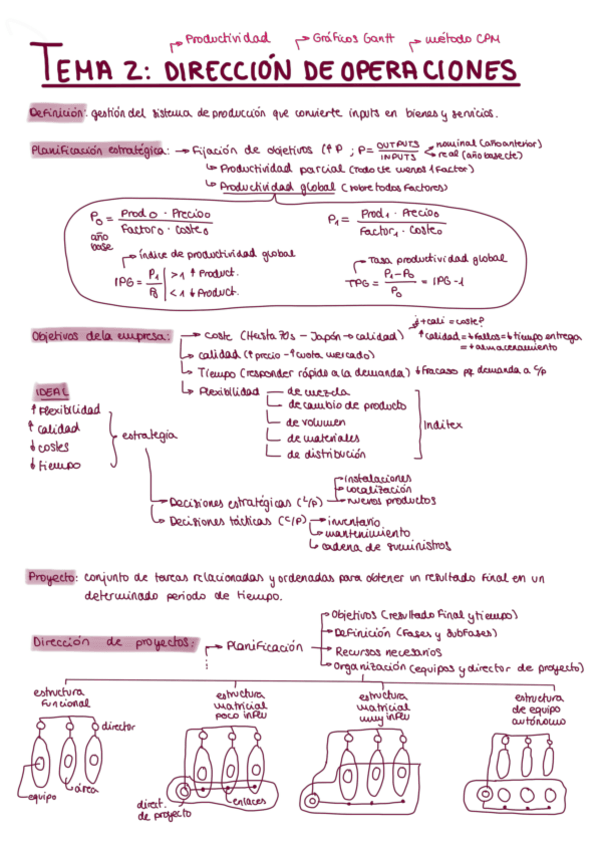 Productividad → Gráficos Gantt → método CPM
TEMA 2: DIRECCIÓN DE OPERACIONES
Definición: gestión del sistema de producción que convierte inputs en bienes y servicios.
Planificación estratégica: → Fijación de objetivos (↑P ; P = OUTPUTS / INPUTS nominal (año anterior)
real (año base cte)
↳ Productividad parcial (Todo cte menos 1 Factor)
↳ Productividad global (sobre todos Factores)
P₀ = Prod₀ · Precio₀ / Factor₀ · Coste₀
año base
P₁ = Prod₁ · Precio₀ / Factor₁ · Coste₀
índice de productividad global
IPG = P₁ / P₀ | >1 ↑ Product.
<1 ↓ Product.
Tasa productividad global
TPG = P₁ - P₀ / P₀ = IPG - 1
¿+cali = coste?
Objetivos de la empresa: → coste (Hasta 70s – Japón → calidad) ↑ calidad = ↓ fallos = ↓ tiempo entrega
= ↓ almacenamiento
↳ calidad (↑ precio - ↑ cuota mercado)
↳ Tiempo (responder rápido a la demanda) ↓ Fracaso pq demanda a c/p
↳ Flexibilidad — de mezcla
de cambio de producto
de volumen
de materiales
de distribución
Inditex
IDEAL
↑ Flexibilidad
↑ calidad
↓ costes
↓ tiempo
estrategia
→ Decisiones estratégicas (L/P) → instalaciones
→ localización
→ nuevos productos
→ Decisiones tácticas (C/P) → inventario
→ mantenimiento
↳ cadena de suministros
Proyecto: conjunto de tareas relacionadas y ordenadas para obtener un resultado final en un
determinado periodo de tiempo.
Dirección de proyectos: → Planificación → Objetivos (resultado final y tiempo)
→ Definición (Fases y subfases)
→ Recursos necesarios
→ Organización (equipos y director de proyecto)
estructura Funcional
estructura matricial poco influ
estructura matricial muy influ
estructura de equipo autónomo
director
equipo
área
direct. de proyecto
enlaces